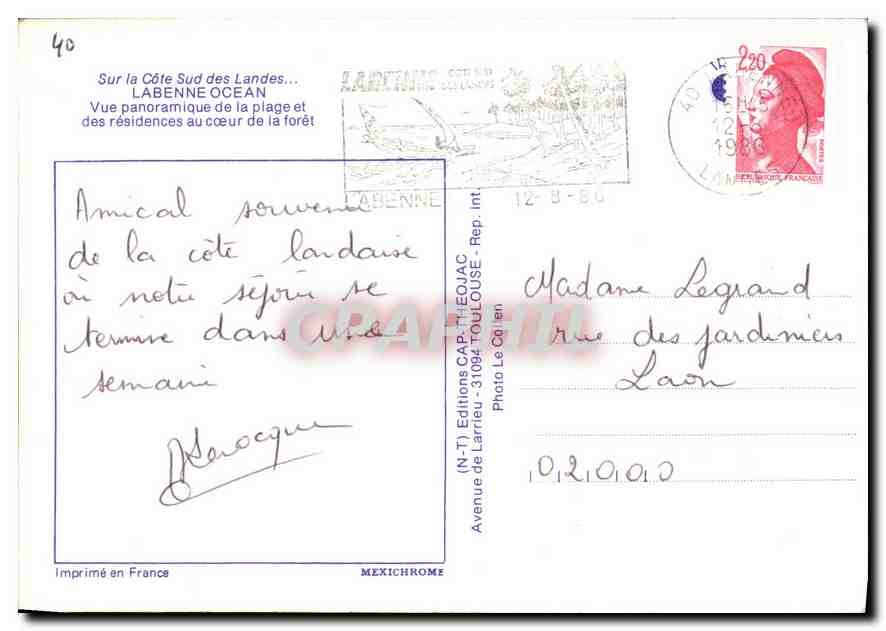 40
Sur la Côte Sud des Landes...
LABENNE OCEAN
Vue panoramique de la plage et
des résidences au cœur de la forêt
LABENNE
LABENNE 12-8-86
2,20
40 LABENNE
12-8
1986
LANDES
POSTES
REPUBLIQUE FRANÇAISE
Amical souvenir
de la côte landaise
où notre séjour se
termine dans une
semaine
(N-T) Editions CAP-THEOJAC
Avenue de Larrieu - 31094 TOULOUSE - Rep. int.
Photo Le Collen
Madame Legrand
rue des jardiniers
Laon
02000
CPAPHIL
Imprimé en France
MEXICHROME